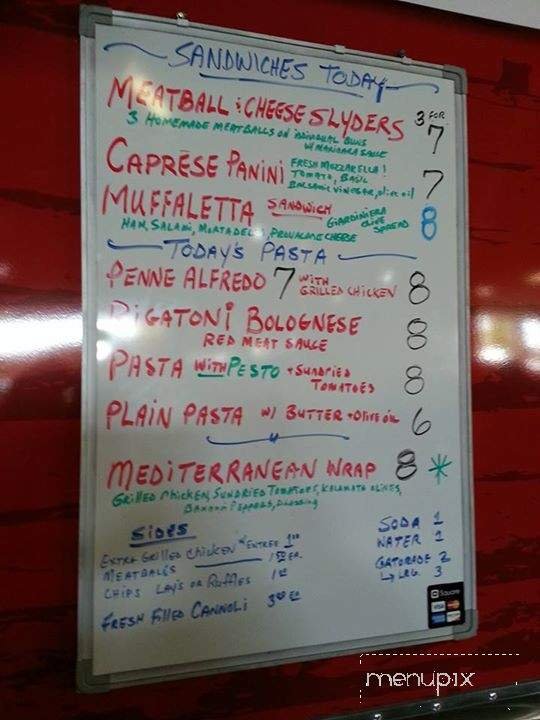 SANDWICHES TODAY
MEATBALL & CHEESE SLYDERS 3 FOR 7
3 HOMEMADE MEATBALLS ON INDIVIDUAL BUNS
W/ MARINARA SAUCE
CAPRESE PANINI FRESH MOZZARELLA! 7
TOMATO, BASIL
BALSAMIC VINEGAR, olive oil
MUFFALETTA SANDWICH GIARDINIERA 8
OLIVE SPREAD
HAM, SALAMI, MORTADELLA, PROVALONE CHEESE
TODAY'S PASTA
PENNE ALFREDO 7 WITH GRILLED CHICKEN 8
RIGATONI BOLOGNESE 8
RED MEAT SAUCE
PASTA WITH PESTO + SUNDRIED 8
TOMATOES
PLAIN PASTA W/ BUTTER + Olive oil 6
MEDITERRANEAN WRAP 8 *
GRILLED CHICKEN, SUNDRIED TOMATOES, KALAMATA OLIVES,
BANANA PEPPERS, DRESSING
SIDES
EXTRA GRILLED CHICKEN W/ ENTREE 1.00
MEATBALLS 1.50 EA.
CHIPS LAY'S OR RUFFLES 1.00
FRESH FILLED CANNOLI 3.00 EA
SODA 1
WATER 1
GATORADE 2
LRG. 3
Square
VISA
menupix